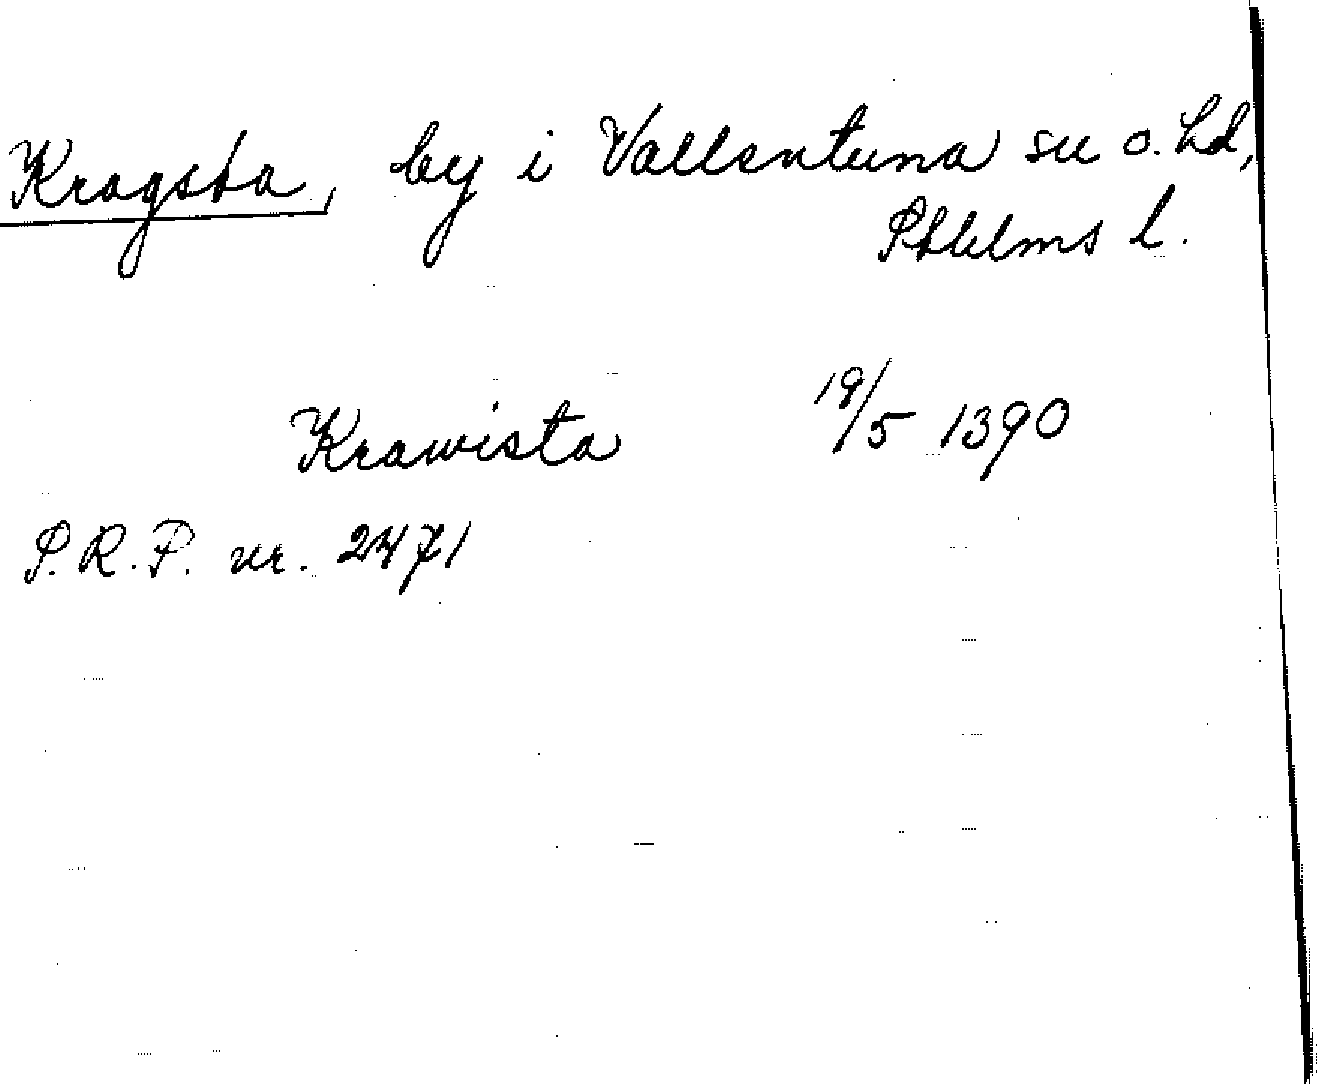 Kragsta, by i Vallentuna sn o. hd,
Sthlms l.
Krawista 19/5 1390
S.R.P. nr. 2471